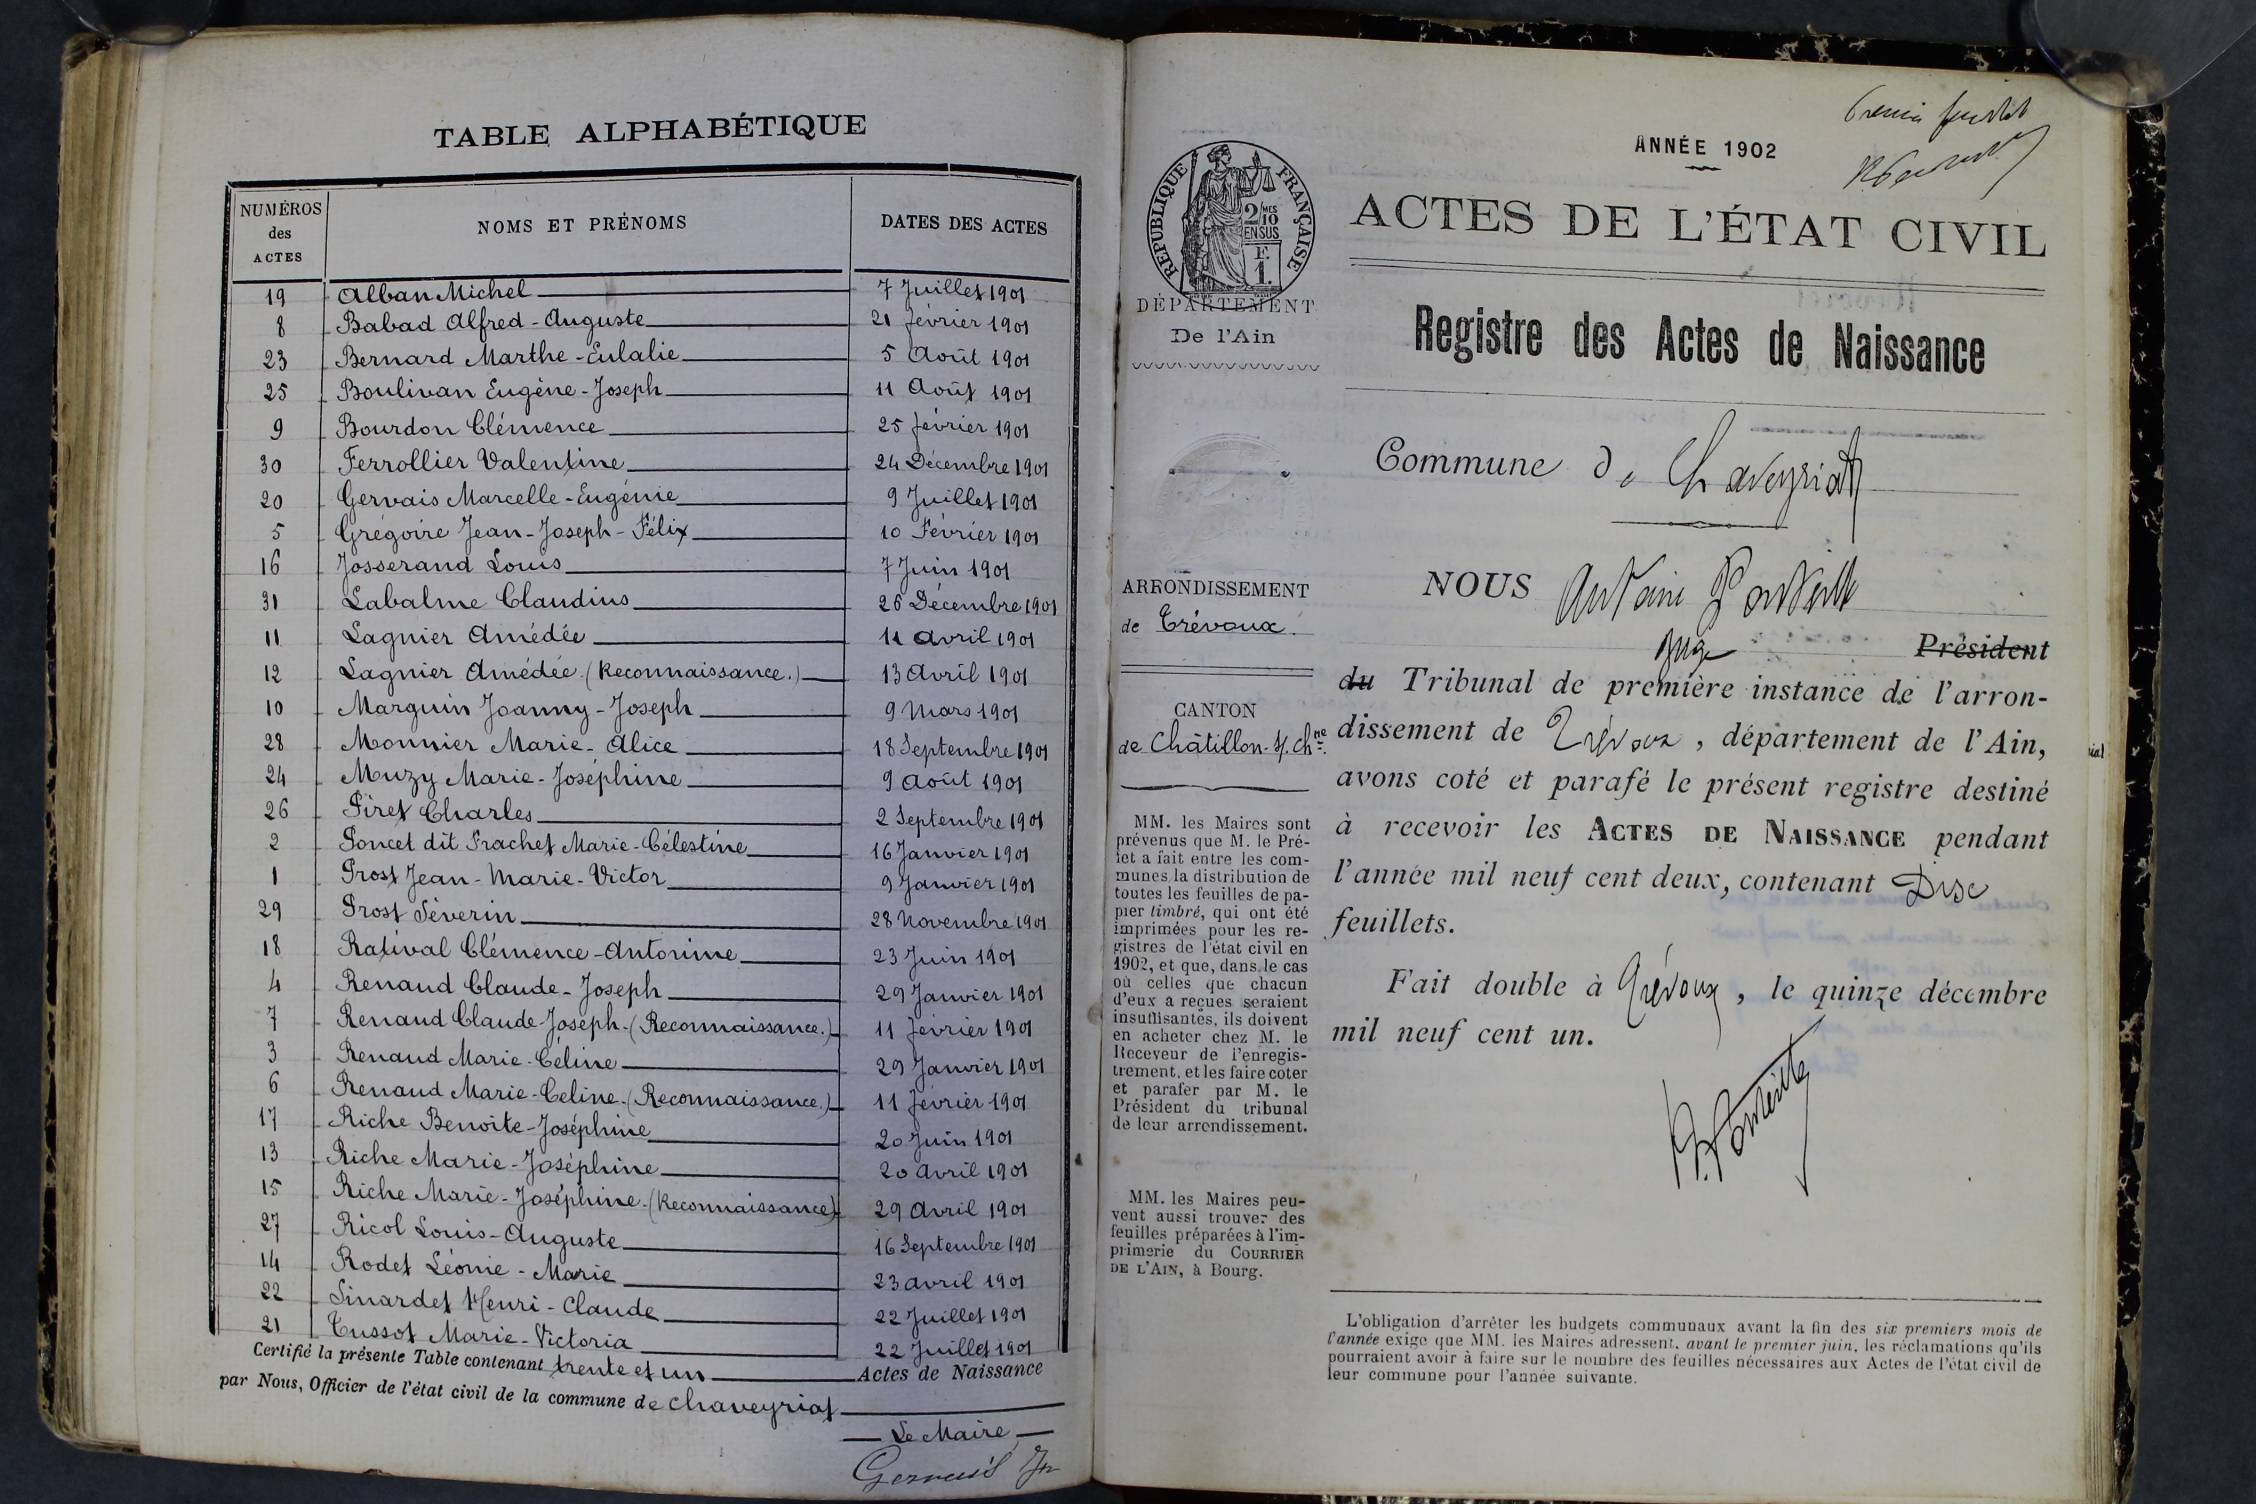 TABLE ALPHABÉTIQUE
NUMÉROS des ACTES NOMS ET PRÉNOMS DATES DES ACTES
19 Alban Michel 7 Juillet 1901
8 Babad Alfred-Auguste 21 février 1901
23 Bernard Marthe-Eulalie 5 Août 1901
25 Boulivan Eugène-Joseph 11 Août 1901
9 Bourdon Clémence 25 février 1901
30 Ferrollier Valentine 24 Décembre 1901
20 Gervais Marcelle-Eugénie 9 Juillet 1901
5 Grégoire Jean-Joseph-Félix 10 Février 1901
16 Josserand Louis 7 Juin 1901
31 Labalme Claudius 26 Décembre 1901
11 Lagnier Amédée 11 avril 1901
12 Lagnier Amédée (Reconnaissance.) 13 Avril 1901
10 Marguin Joanny-Joseph 9 Mars 1901
28 Monnier Marie-Alice 18 Septembre 1901
24 Muzy Marie-Joséphine 9 Août 1901
26 Piret Charles 2 Septembre 1901
2 Poncet dit Frachet Marie-Célestine 16 Janvier 1901
1 Prost Jean-Marie-Victor 9 Janvier 1901
29 Prost Séverin 28 Novembre 1901
18 Ratival Clémence-Antonine 23 Juin 1901
4 Renaud Claude-Joseph 29 Janvier 1901
7 Renaud Claude-Joseph-(Reconnaissance.) 11 février 1901
3 Renaud Marie-Céline 29 Janvier 1901
6 Renaud Marie-Céline-(Reconnaissance.) 11 février 1901
17 Riche Benoite-Joséphine 20 Juin 1901
13 Riche Marie-Joséphine 20 avril 1901
15 Riche Marie-Joséphine-(Reconnaissance) 29 Avril 1901
27 Ricol Louis-Auguste 16 Septembre 1901
14 Rodet Léonie-Marie 23 avril 1901
22 Sinardet Henri-Claude 22 Juillet 1901
21 Tussot Marie-Victoria 22 Juillet 1901
Certifié la présente Table contenant trente et un Actes de Naissance
par Nous, Officier de l'état civil de la commune de Chaveyriat
Le Maire
Gervais
Premier feuillet
ANNÉE 1902
ACTES DE L'ÉTAT CIVIL
RÉPUBLIQUE FRANÇAISE
2/10 MES
EN SUS
F.
1.
DÉPARTEMENT
De l'Ain
Registre des Actes de Naissance
Commune de Chaveyriat
ARRONDISSEMENT
de Trévoux.
CANTON
de Châtillon-s/-Chne
MM. les Maires sont
prévenus que M. le Pré-
fet a fait entre les com-
munes la distribution de
toutes les feuilles de pa-
pier timbré, qui ont été
imprimées pour les re-
gistres de l'état civil en
1902, et que, dans le cas
où celles que chacun
d'eux a reçues seraient
insuffisantes, ils doivent
en acheter chez M. le
Receveur de l'enregis-
trement, et les faire coter
et parafer par M. le
Président du tribunal
de leur arrondissement.
MM. les Maires peu-
vent aussi trouver des
feuilles préparées à l'im-
primerie du COURRIER
DE L'AIN, à Bourg.
NOUS Antoine Ponteille
Juge Président
du Tribunal de première instance de l'arron-
dissement de Trévoux, département de l'Ain,
avons coté et parafé le présent registre destiné
à recevoir les ACTES DE NAISSANCE pendant
l'année mil neuf cent deux, contenant Dix
feuillets.
Fait double à Trévoux, le quinze décembre
mil neuf cent un.
Ponteille
L'obligation d'arrêter les budgets communaux avant la fin des six premiers mois de
l'année exige que MM. les Maires adressent, avant le premier juin, les réclamations qu'ils
pourraient avoir à faire sur le nombre des feuilles nécessaires aux Actes de l'état civil de
leur commune pour l'année suivante.